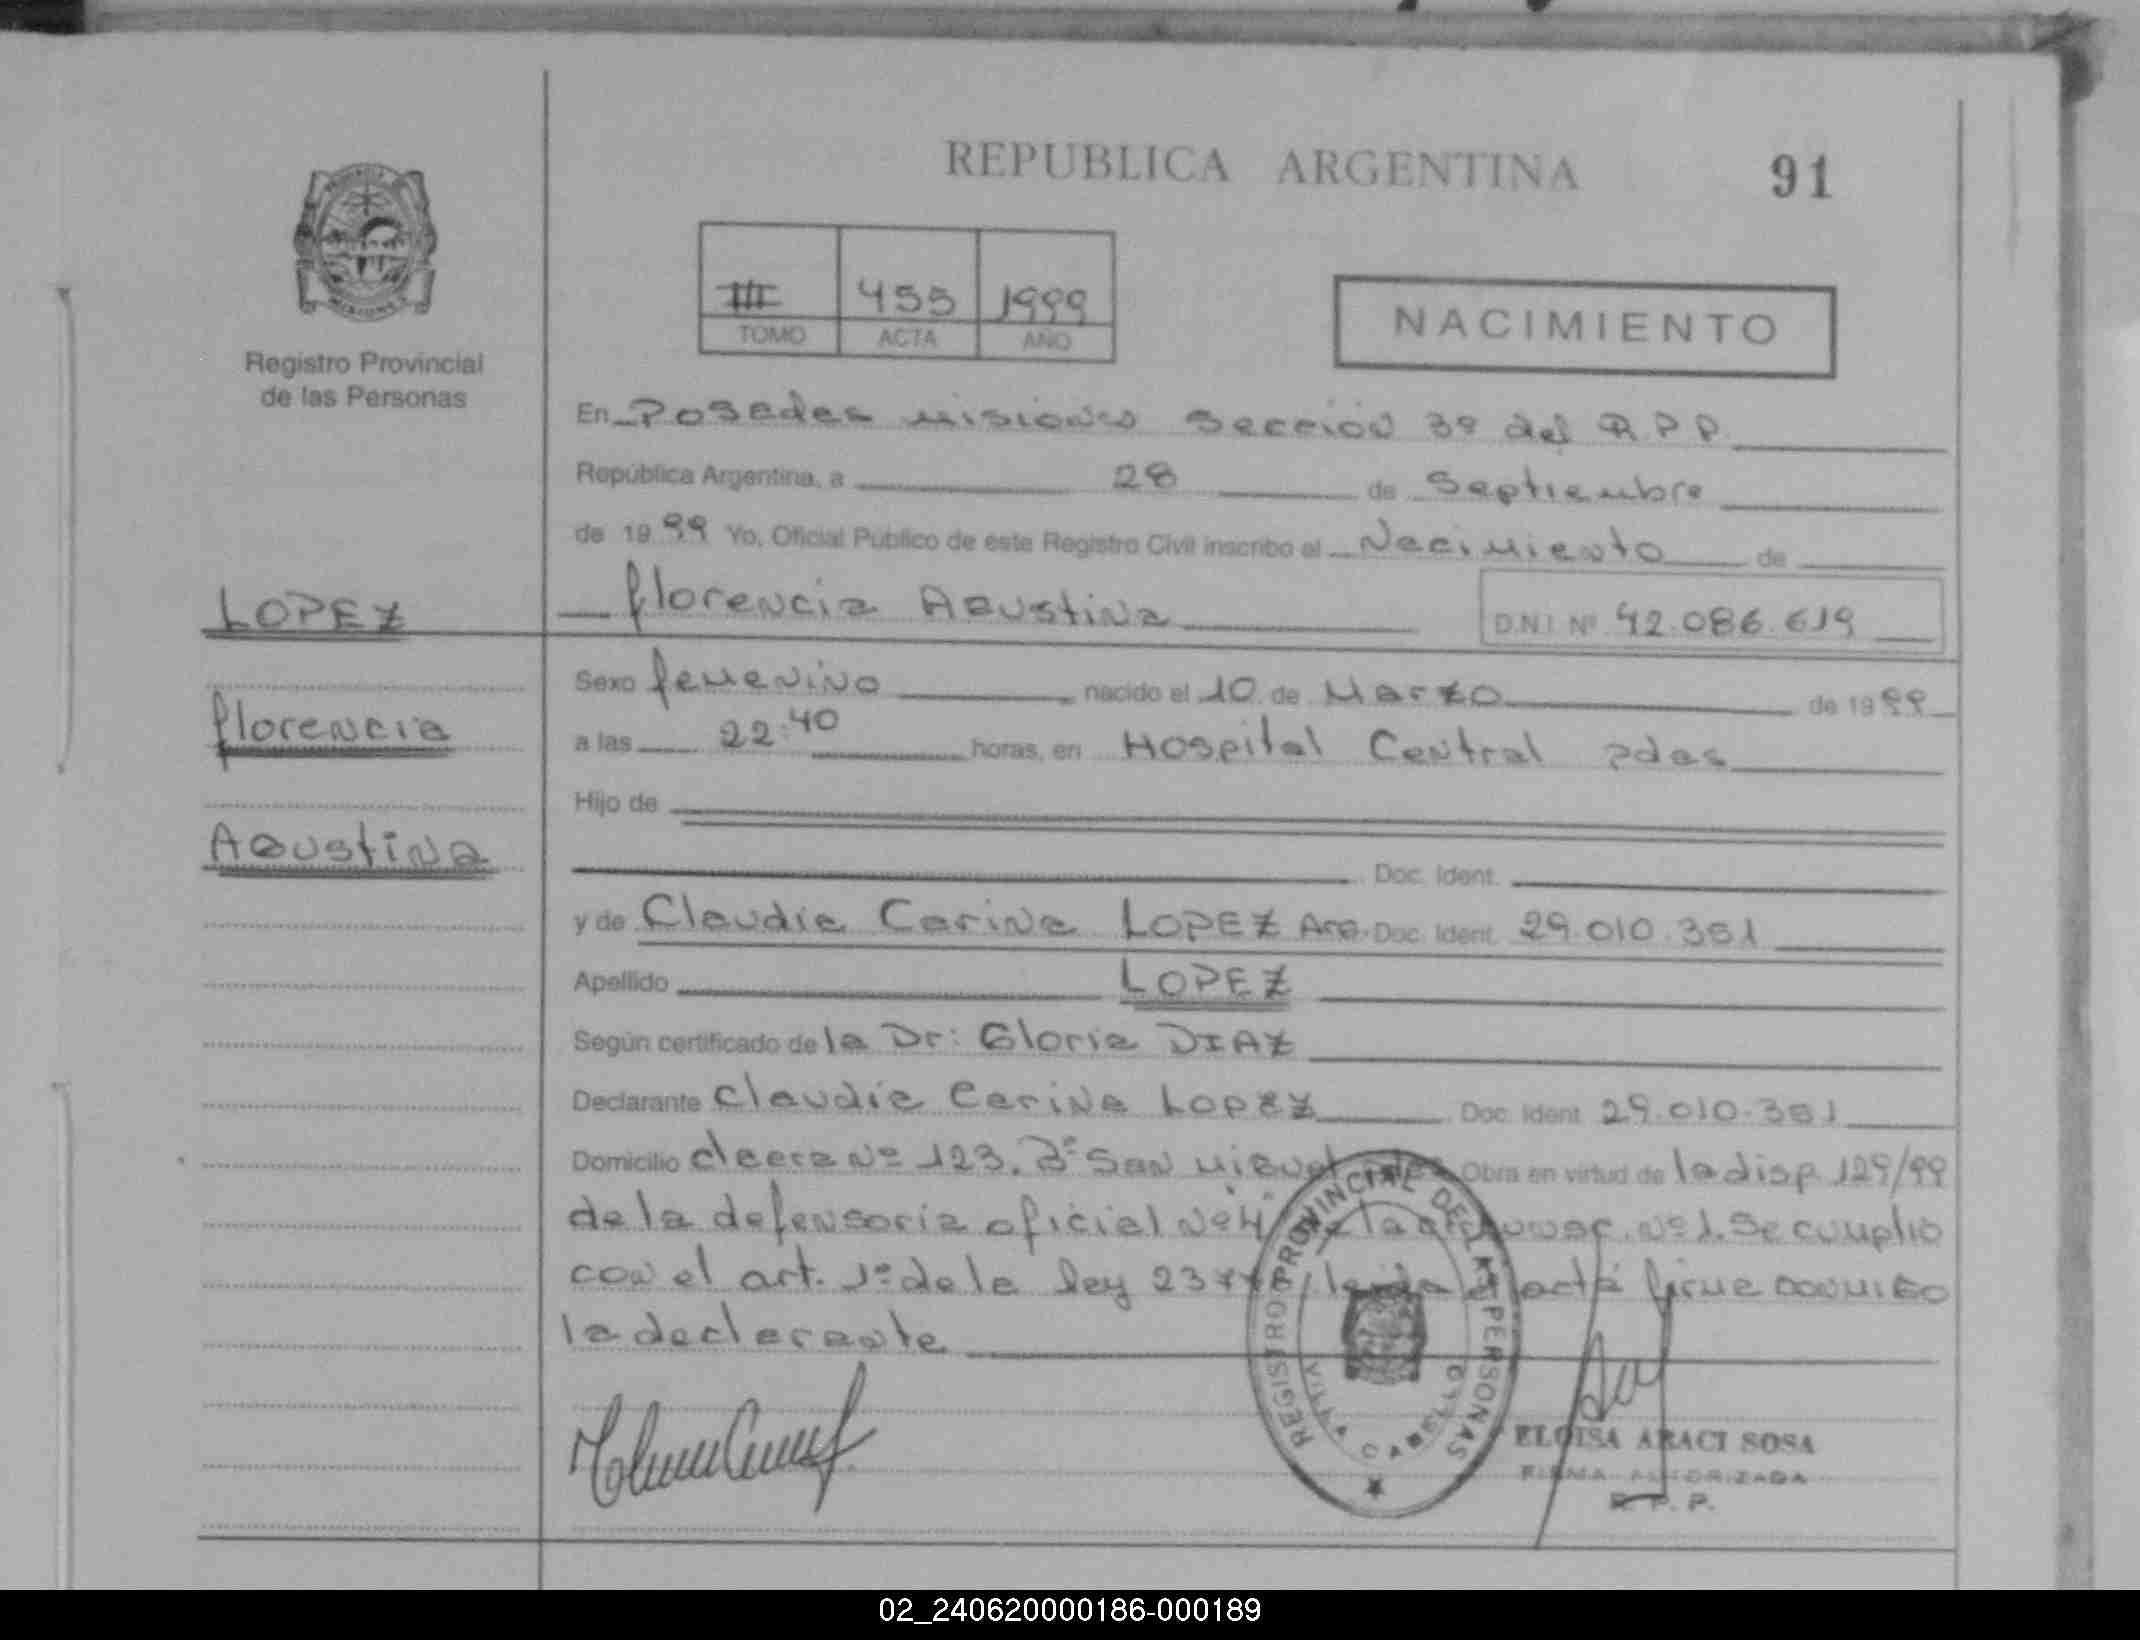 REPUBLICA ARGENTINA
91
III 455 1999
TOMO ACTA AÑO
NACIMIENTO
Registro Provincial
de las Personas
En Posadas Misiones Sección 3º del R.P.P.
República Argentina, a 28 de Septiembre
de 1999 Yo, Oficial Público de este Registro Civil inscribo el Nacimiento de
Florencia Agustina D.N.I. Nº 42.086.619
LOPEZ
Florencia
Agustina
Sexo femenino nacido el 10 de Marzo de 1999
a las 22:40 horas, en Hospital Central Pdas
Hijo de
Doc. Ident.
y de Claudia Carina LOPEZ Arg. Doc. Ident. 29.010.351
Apellido LOPEZ
Según certificado de la Dr: Gloria DIAZ
Declarante Claudia Carina Lopez Doc. Ident. 29.010.351
Domicilio Nº 123. Bº San Miguel Obra en virtud de la disp. 129/99
de la defensoria oficial Nº 4 Nº 1. Se cumplio
con el art. 1º de la ley acta firma conmigo
la declarante
REGISTRO PROVINCIAL DE LAS PERSONAS
VILLA CABELLO
ELOISA ARACI SOSA
FIRMA AUTORIZADA
R. P. P.
02_240620000186-000189